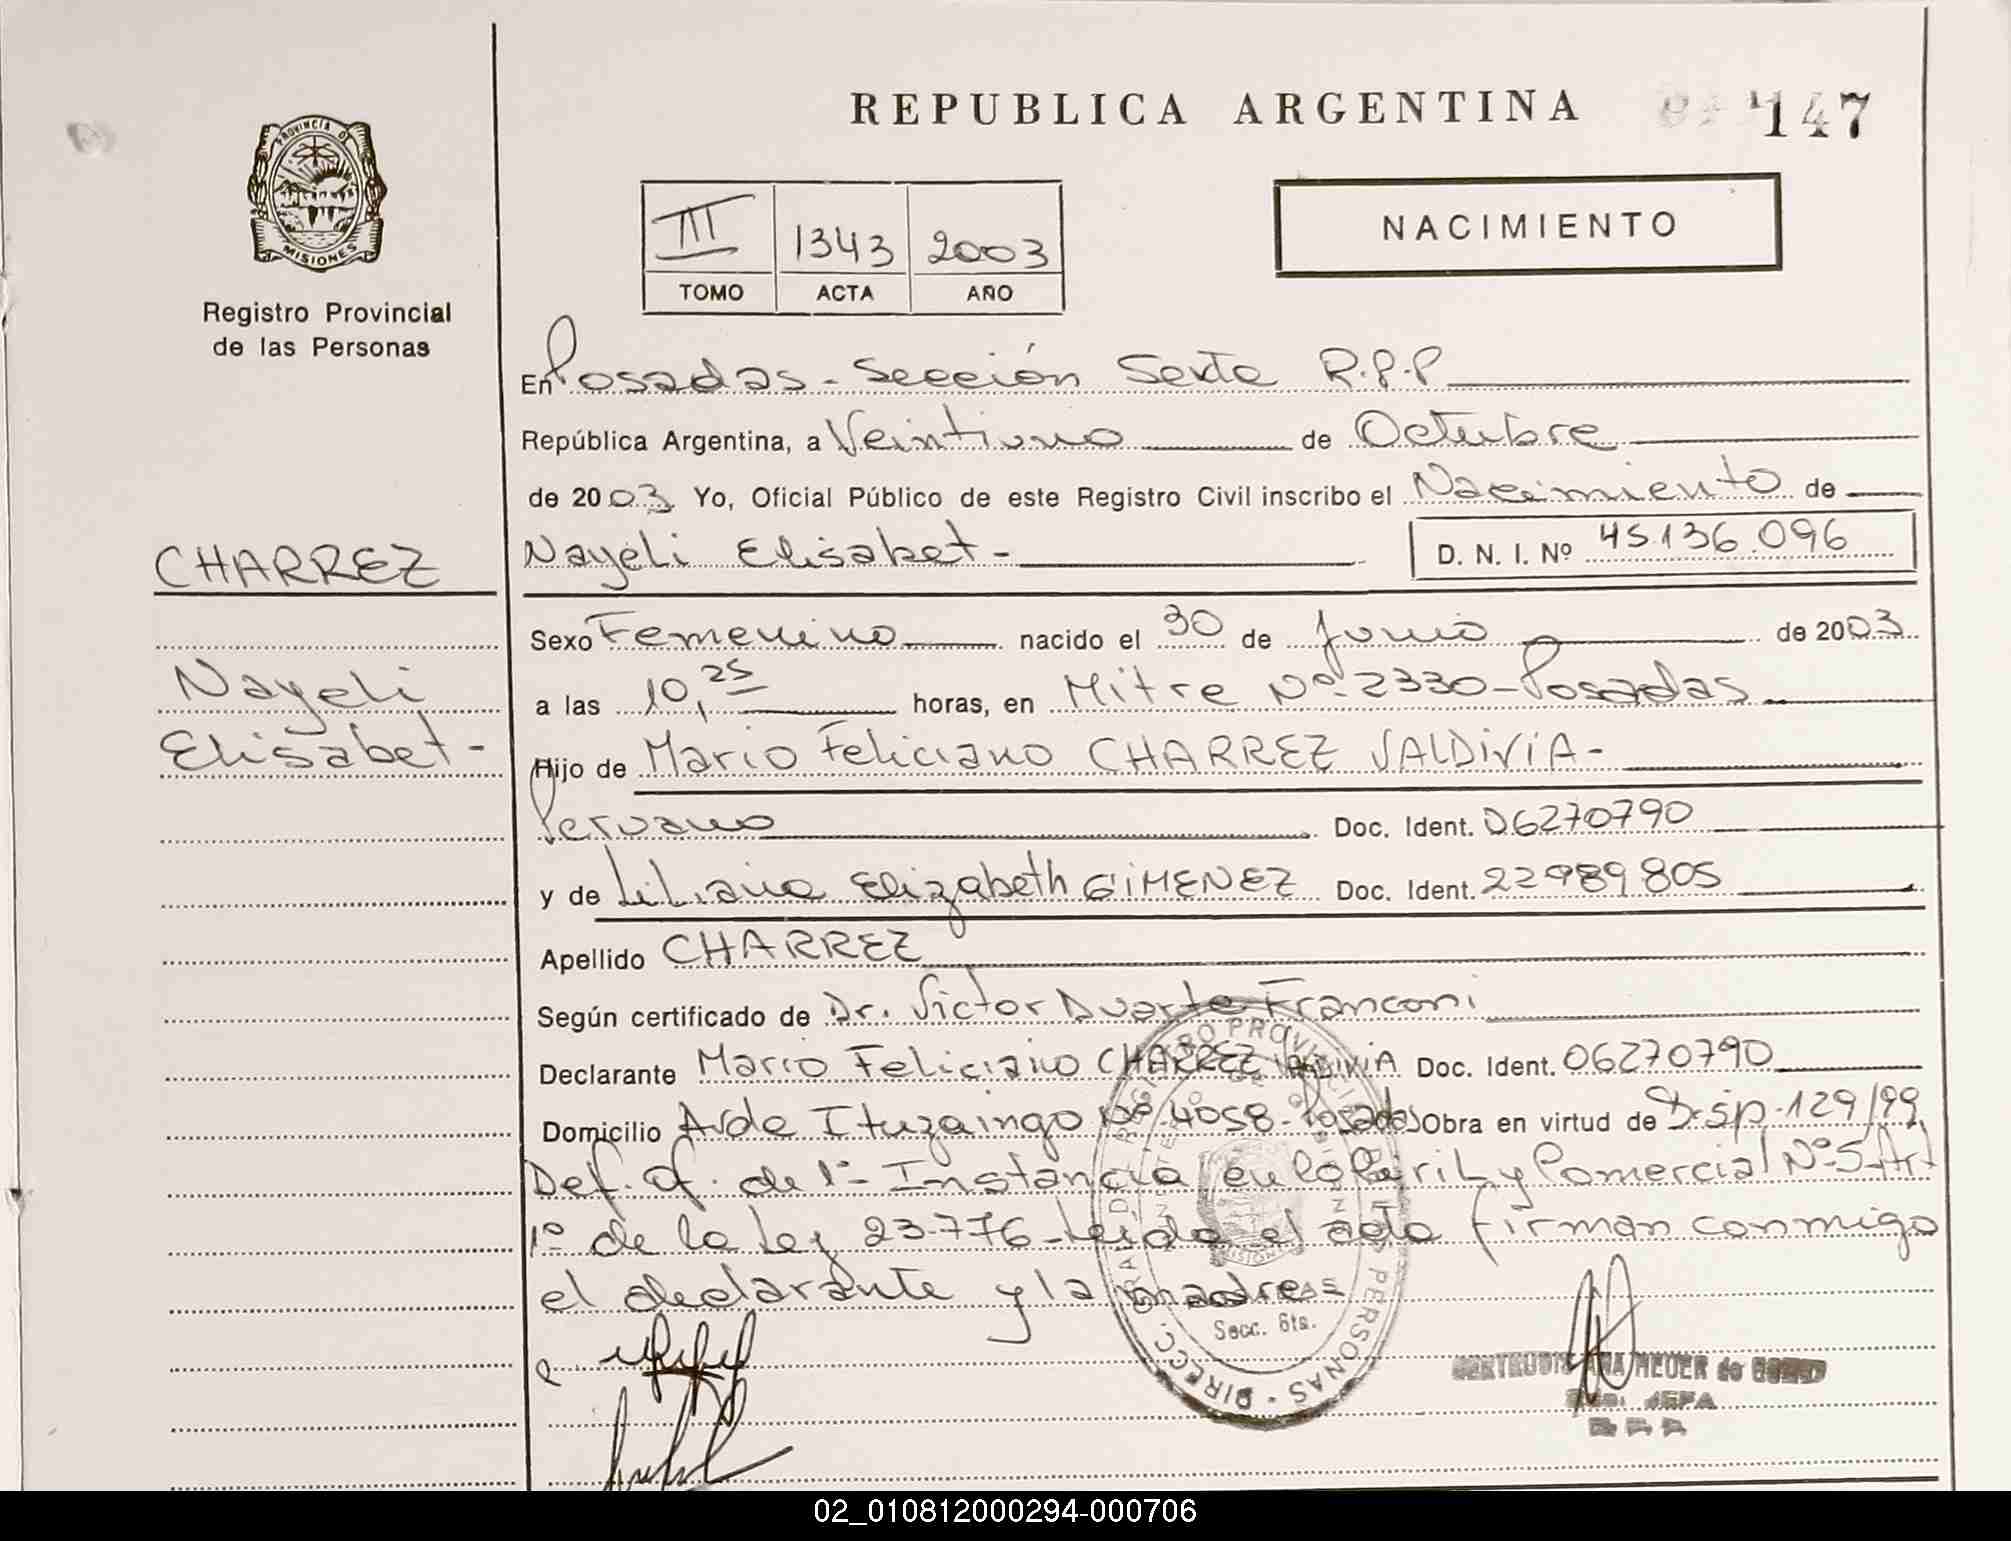 REPUBLICA ARGENTINA
147
PROVINCIA DE
MISIONES
Registro Provincial
de las Personas
III 1343 2003
TOMO ACTA AÑO
NACIMIENTO
En Posadas - Sección Sexta R.P.P
República Argentina, a Veintiuno de Octubre
de 2003 Yo, Oficial Público de este Registro Civil inscribo el Nacimiento de
CHARREZ
Nayeli Elisabet - D. N. I. Nº 45.136.096
Sexo Femenino nacido el 30 de Junio de 2003
Nayeli
Elisabet -
a las 10,25 horas, en Mitre Nº 2330 - Posadas
Hijo de Mario Feliciano CHARREZ VALDIVIA -
Peruano Doc. Ident. 06270790
y de Liliana Elizabeth GIMENEZ Doc. Ident. 22989805
Apellido CHARREZ
Según certificado de Dr. Victor Duarte Franconi
Declarante Mario Feliciano CHARREZ VALDIVIA Doc. Ident. 06270790
Domicilio Avda Ituzaingo Nº 4058 - Posadas Obra en virtud de Disp. 129/99
Def. Of. de 1º Instancia en lo Civil y Comercial Nº 5 - Art
1º de la Ley 23.776 - Leida el acta firman conmigo
el declarante y la madre
DIRECC. GRAL. DE REGISTRO PROVINCIAL DE LAS PERSONAS
MISIONES
Secc. 6ta.
HEUER de
JEFA
02_010812000294-000706